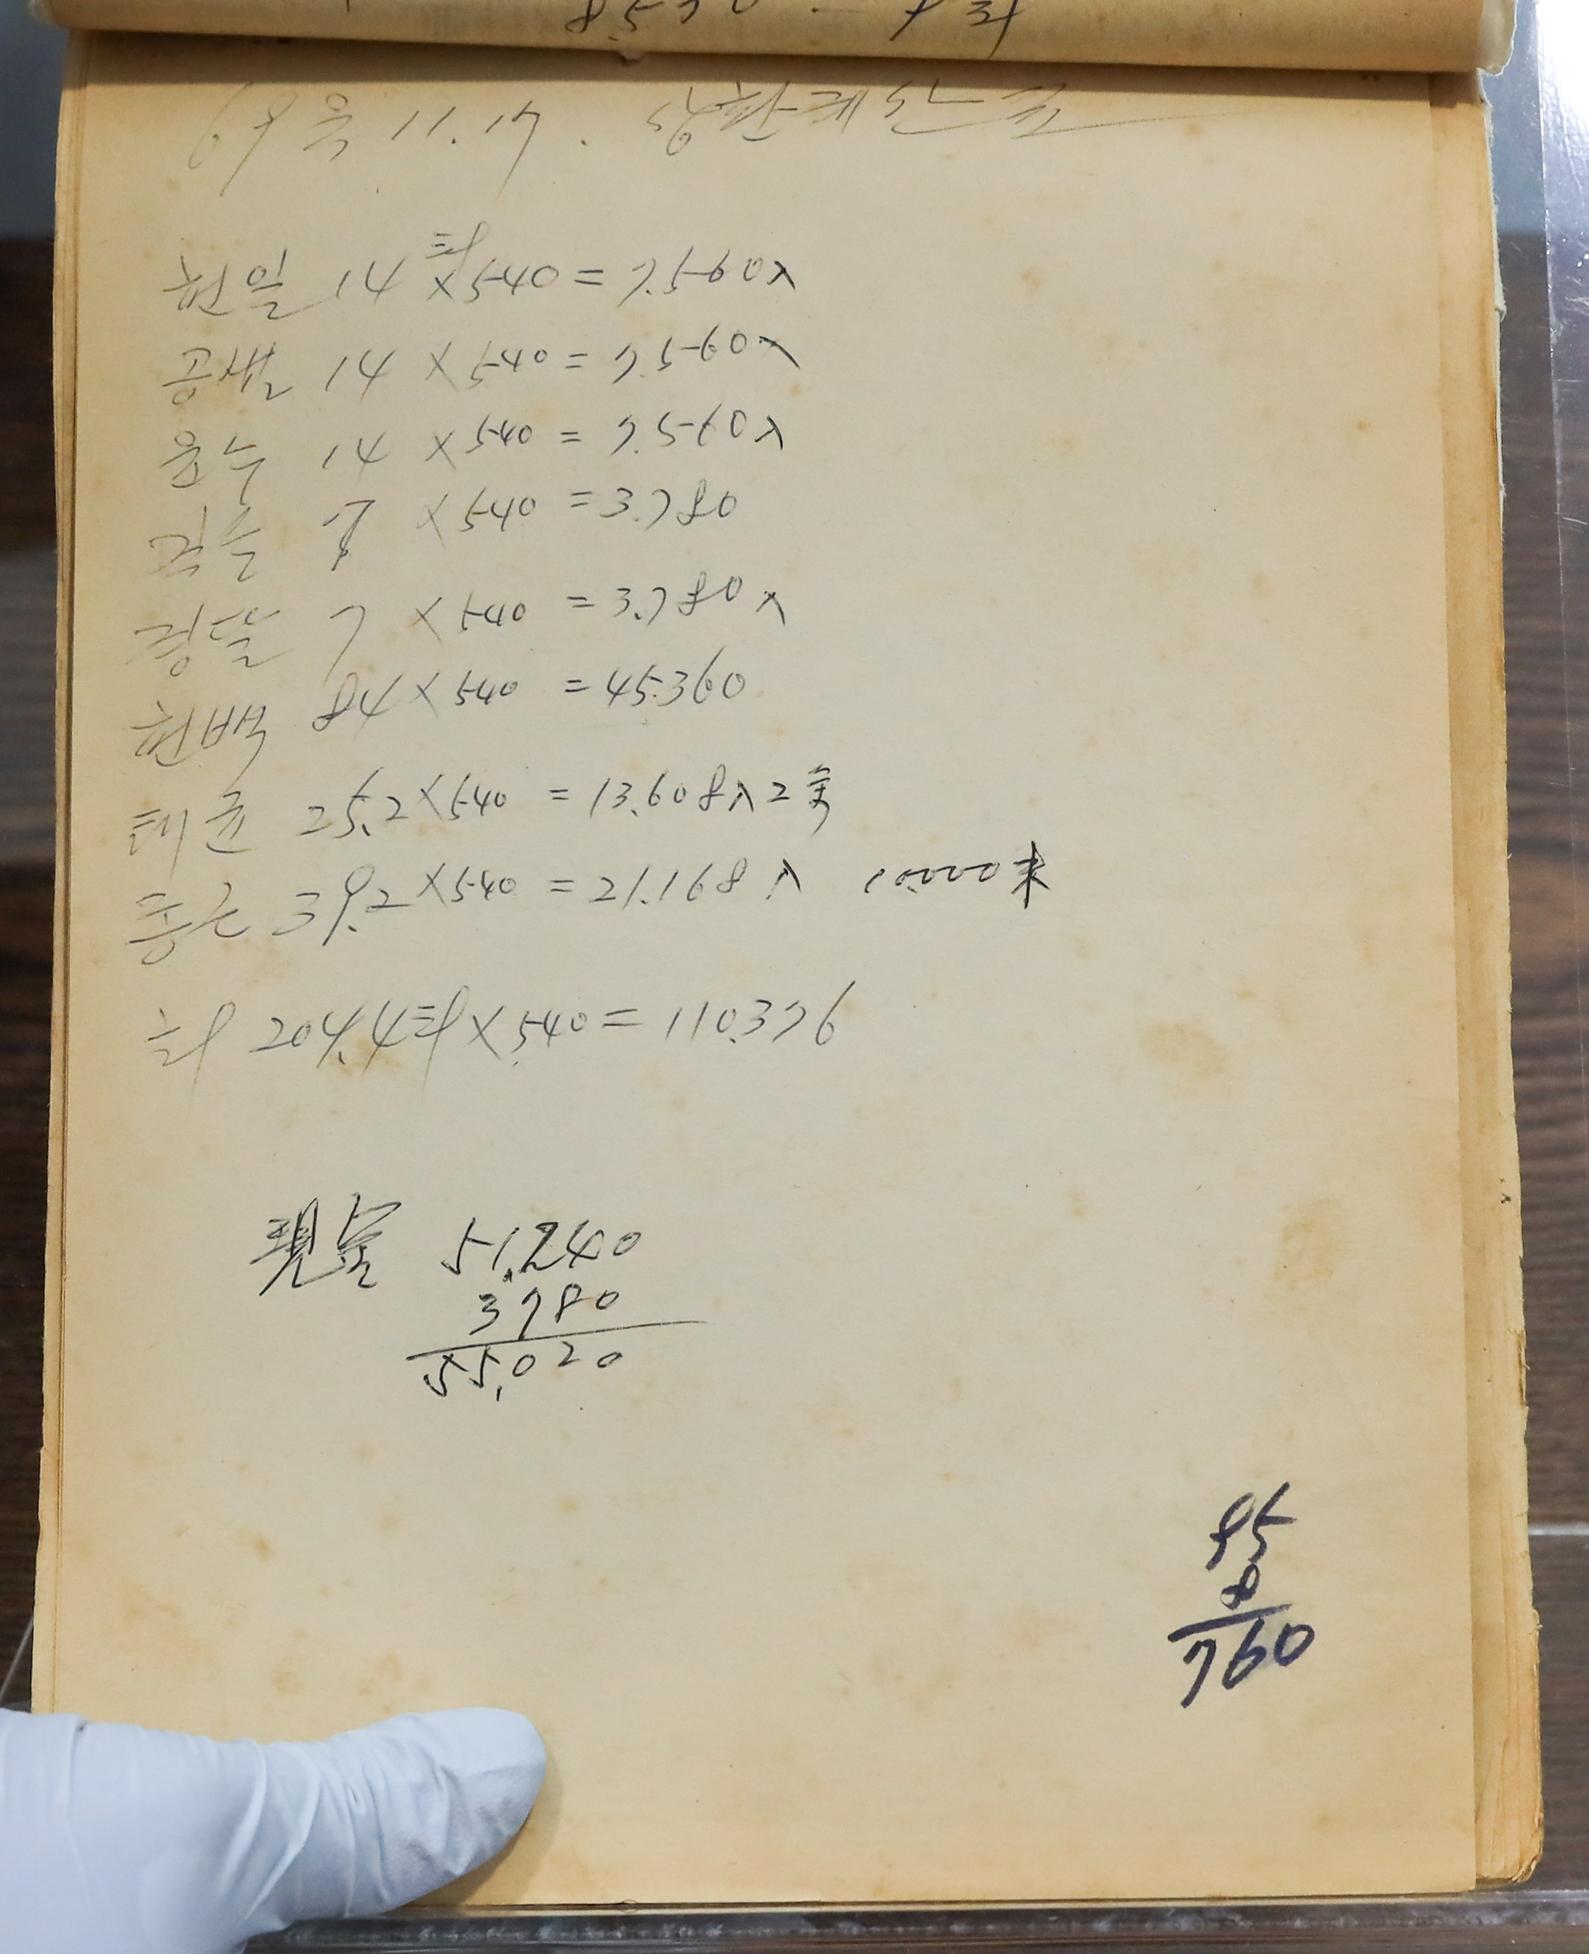 8.530
69 음 11.17. 상환계산표
헌일 14타 × 540 = 7.560入
공샌 14 × 540 = 7.560入
윤수 14 × 540 = 7.560入
7 × 540 = 3.780
정달 7 × 540 = 3.780入
헌백 84 × 540 = 45.360
태균 25.2 × 540 = 13.608入
종근 39.2 × 540 = 21.168入 10.000末
계 204.4타 × 540 = 110.376
現金 51,240
3780
55,020
95
8
760